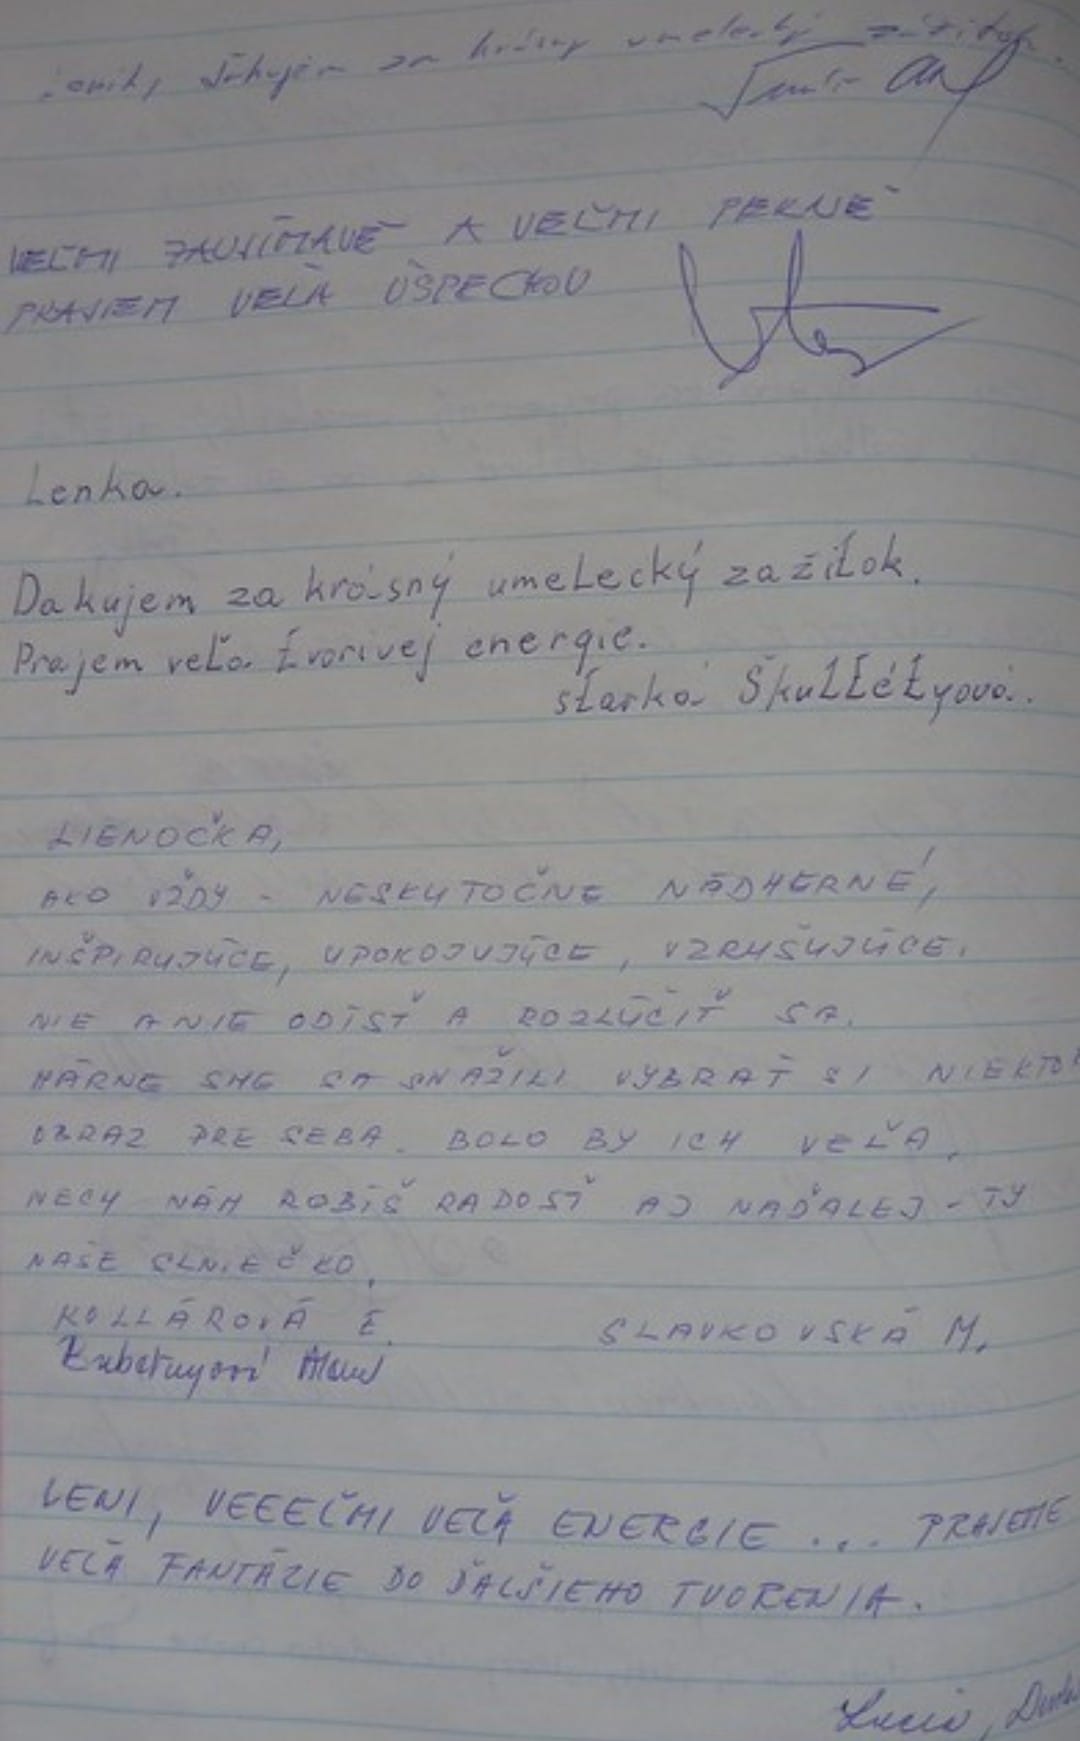 ďakujem za krásny umelecký zážitok.
VEĽMI ZAUJÍMAVÉ A VEĽMI PEKNÉ
PRAJEM VEĽA ÚSPECHOV
Lenka.
Dakujem za krásny umelecký zažitok.
Prajem veľa tvorivej energie.
starká Škultétyová.
LIENOČKA,
AKO VŽDY - NESKUTOČNE NÁDHERNÉ,
INŠPIRUJÚCE, UPOKOJUJÚCE, VZRUŠUJÚCE.
NIE A NIE ODÍSŤ A ROZLÚČIŤ SA.
MÁRNE SME SA SNAŽILI VYBRAŤ SI NIEKTOR
OBRAZ PRE SEBA. BOLO BY ICH VEĽA.
NECH NÁM ROBÍŠ RADOSŤ AJ NAĎALEJ - TY
NAŠE SLNIEČKO.
KOLLÁROVÁ E. SLAVKOVSKÁ M.
LENI, VEEEĽMI VEĽA ENERGIE ... PRAJEME
VEĽA FANTÁZIE DO ĎALŠIEHO TVORENIA.
Lucia,